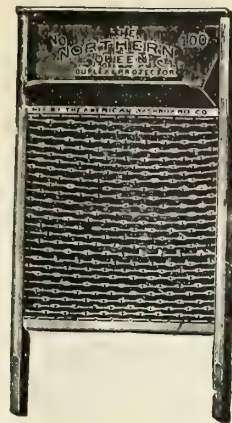 NO. THE 100
NORTHERN
QUEEN
DUPLEX PROTECTOR
THE AMERICAN WASHBOARD CO